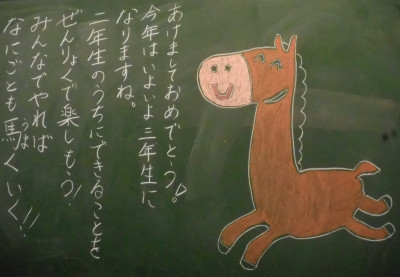 あけましておめでとう。
今年はいよいよ三年生に
なりますね。
二年生のうちにできることを
ぜんりょくで楽しもう!
みんなでやれば
なにごとも馬くいく!!
うま